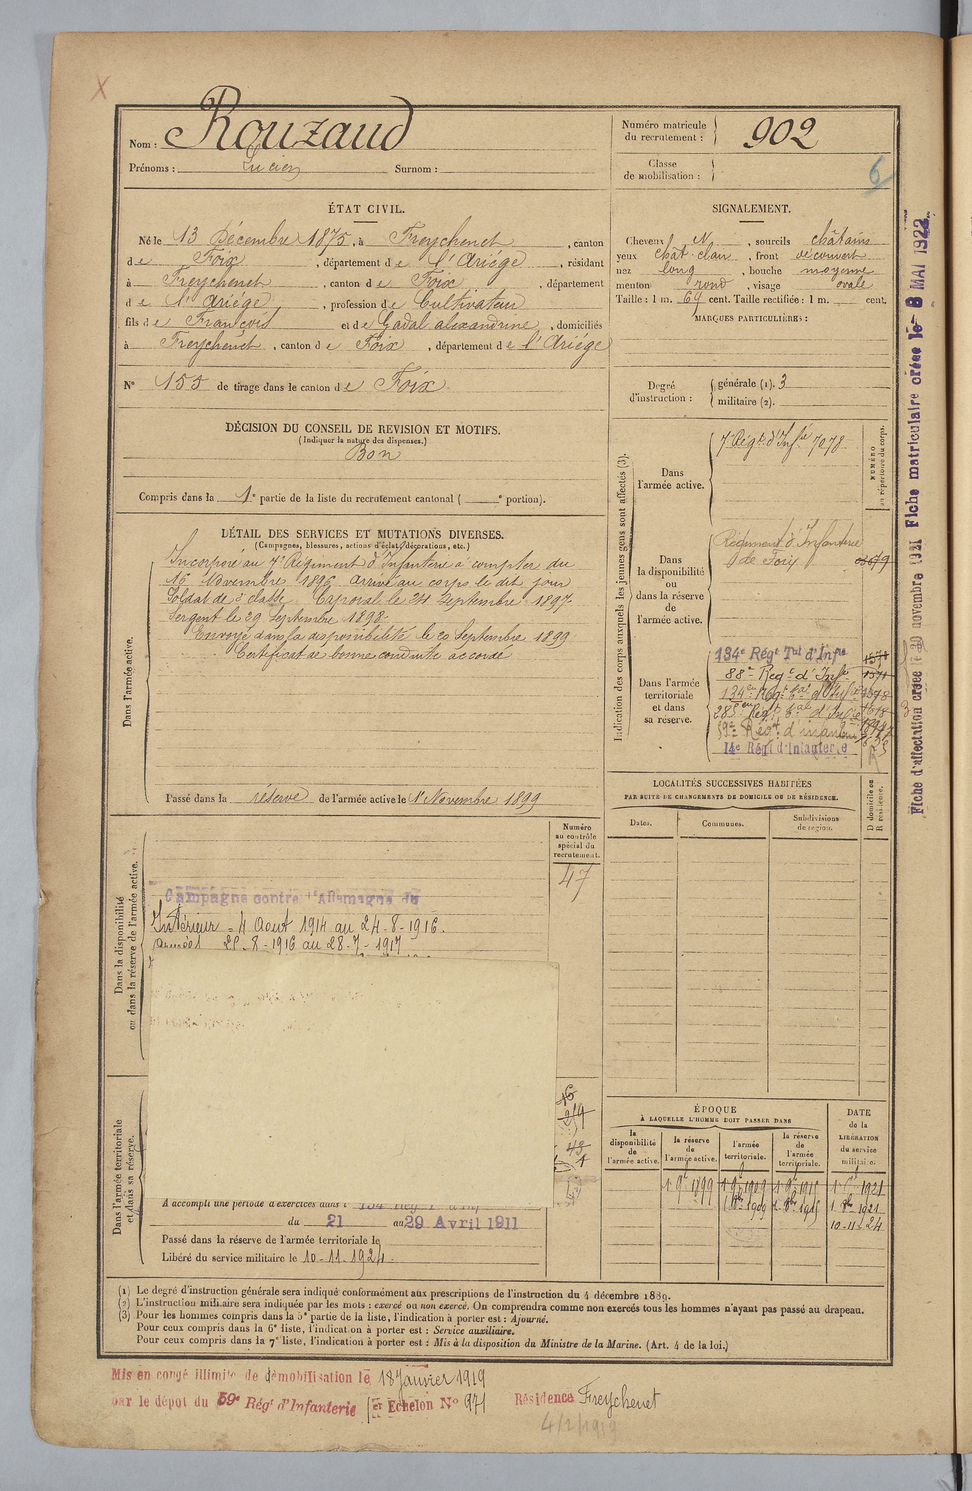 Nom : Rouzaud
Prénoms : Lucien Surnom :
Numéro matricule du recrutement : 902
Classe de mobilisation :
6
ÉTAT CIVIL.
Né le 13 Décembre 1875, à Freychenet, canton
de Foix, département de l'Ariége, résidant
à Freychenet, canton de Foix, département
de l'Ariége, profession de Cultivateur
fils de François et de Gadal alexandrine, domiciliés
à Freychenet, canton de Foix, département de l'Ariége
N° 155 de tirage dans le canton de Foix.
DÉCISION DU CONSEIL DE REVISION ET MOTIFS.
(Indiquer la nature des dispenses.)
Bon
Compris dans la 1e partie de la liste du recrutement cantonal ( e portion).
DÉTAIL DES SERVICES ET MUTATIONS DIVERSES.
(Campagnes, blessures, actions d'éclat, décorations, etc.)
Dans l'armée active.
Incorporé au 7e Régiment d'Infanterie à compter du
16 Novembre 1896. Arrivé au corps le dit jour
Soldat de 2e classe. Caporal le 24 Septembre 1897.
Sergent le 29 Septembre 1898.
Envoyé dans la disponibilité le 20 Septembre 1899
Certificat de bonne conduite accordé
Passé dans la réserve de l'armée active le 1er Novembre 1899
Dans la disponibilité ou dans la réserve de l'armée active.
Numéro au contrôle spécial du recrutement.
47
Campagne contre l'Allemagne du
Intérieur = 4 Aout 1914 au 24-8-1916.
Armées 25-8-1916 au 28-7-1917
Dans l'armée territoriale et dans sa réserve.
A accompli une période d'exercices dans l
du 21 au 29 Avril 1911
Passé dans la réserve de l'armée territoriale le
Libéré du service militaire le 10-11-1924.
SIGNALEMENT.
Cheveux N, sourcils châtains
yeux chat. clair, front découvert
nez long, bouche moyenne
menton rond, visage ovale
Taille : 1 m. 69 cent. Taille rectifiée : 1 m. cent.
MARQUES PARTICULIÈRES :
Degré d'instruction : générale (1). 3
militaire (2).
Indication des corps auxquels les jeunes gens sont affectés (3).
NUMÉRO au répertoire du corps.
Dans l'armée active.
7e Régt d'Infie 7078
Dans la disponibilité ou dans la réserve de l'armée active.
Régiment d'Infanterie
de Foix
Dans l'armée territoriale et dans sa réserve.
134e Régt Tal d'Infie
88e Regt d'Infie
134e Régt tal d'Infie
59e Régt d'infanterie
14e Régt d'Infanterie
LOCALITÉS SUCCESSIVES HABITÉES
PAR SUITE DE CHANGEMENTS DE DOMICILE OU DE RÉSIDENCE.
Dates. Communes. Subdivisions de région. D domicile ou R résidence.
ÉPOQUE
À LAQUELLE L'HOMME DOIT PASSER DANS
la disponibilité de l'armée active. la réserve de l'armée active. l'armée territoriale. la réserve de l'armée territoriale.
DATE de la LIBÉRATION du service militaire.
10-11-24
(1) Le degré d'instruction générale sera indiqué conformément aux prescriptions de l'instruction du 4 décembre 1889.
(2) L'instruction militaire sera indiquée par les mots : exercé ou non exercé. On comprendra comme non exercés tous les hommes n'ayant pas passé au drapeau.
(3) Pour les hommes compris dans la 5e partie de la liste, l'indication à porter est : Ajourné.
Pour ceux compris dans la 6e liste, l'indication à porter est : Service auxiliaire.
Pour ceux compris dans la 7e liste, l'indication à porter est : Mis à la disposition du Ministre de la Marine. (Art. 4 de la loi.)
Mis en congé illimité de démobilisation le 18 Janvier 1919
par le dépot du 59e Régt d'Infanterie 1er Echelon N° 971 Résidence Freychenet
4/2/1919
Fiche d'affectation créée le 30 novembre 1921 Fiche matriculaire créée le 8 MAI 1922